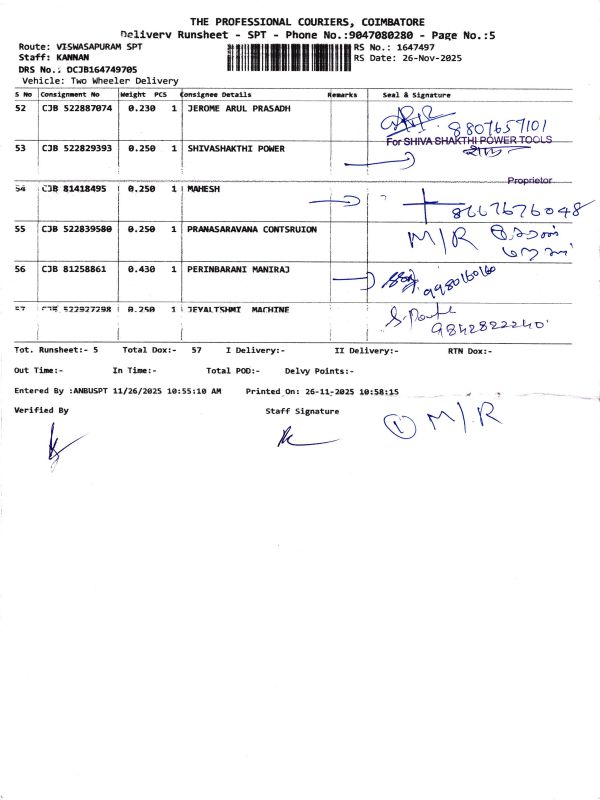 THE PROFESSIONAL COURIERS, COIMBATORE
Delivery Runsheet - SPT - Phone No.:9047080280 - Page No.:5
Route: VISWASAPURAM SPT RS No.: 1647497
Staff: KANNAN RS Date: 26-Nov-2025
DRS No.: DCJB164749705
Vehicle: Two Wheeler Delivery
S No Consignment No Weight PCS Consignee Details Remarks Seal & Signature
52 CJB 522887074 0.230 1 JEROME ARUL PRASADH
8807657101
53 CJB 522829393 0.250 1 SHIVASHAKTHI POWER
For SHIVA SHAKTHI POWER TOOLS
Proprietor
54 CJB 81418495 0.250 1 MAHESH
8667676048
55 CJB 522839580 0.250 1 PRANASARAVANA CONTSRUION
M/R
56 CJB 81258861 0.430 1 PERINBARANI MANIRAJ
9980160160
57 CJB 522927298 0.250 1 JEYALTSHMI MACHINE
9842822240
Tot. Runsheet:- 5 Total Dox:- 57 I Delivery:- II Delivery:- RTN Dox:-
Out Time:- In Time:- Total POD:- Delvy Points:-
Entered By :ANBUSPT 11/26/2025 10:55:10 AM Printed On: 26-11-2025 10:58:15
Verified By Staff Signature
① M/R